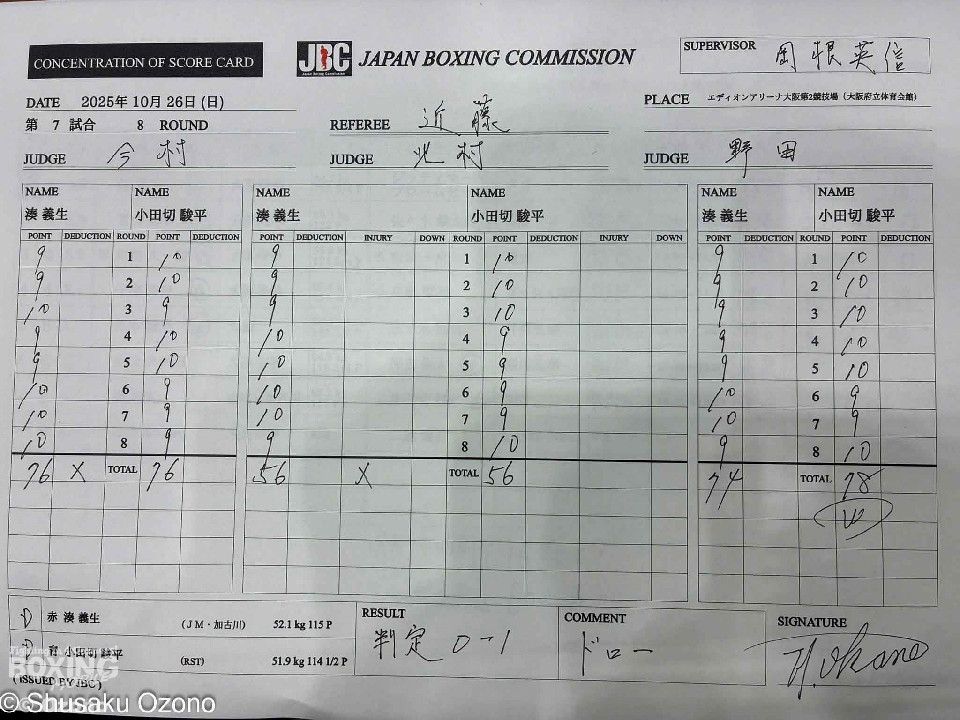 CONCENTRATION OF SCORE CARD
JBC JAPAN BOXING COMMISSION
SUPERVISOR
DATE 2025年 10月 26日 (日)
PLACE エディオンアリーナ大阪第2競技場 (大阪府立体育会館)
第 7 試合 8 ROUND
REFEREE 近藤
JUDGE 今村 JUDGE 児村 JUDGE 野田
NAME NAME NAME NAME NAME NAME
湊 義生 小田切 駿平 湊 義生 小田切 駿平 湊 義生 小田切 駿平
POINT DEDUCTION ROUND POINT DEDUCTION POINT DEDUCTION INJURY DOWN ROUND POINT DEDUCTION INJURY DOWN POINT DEDUCTION ROUND POINT DEDUCTION
9 1 10 9 1 10 9 1 10
9 2 10 9 2 10 9 2 10
10 3 9 9 3 10 9 3 10
9 4 10 10 4 9 9 4 10
9 5 10 10 5 9 9 5 10
10 6 9 10 6 9 10 6 9
10 7 9 10 7 9 10 7 9
10 8 9 9 8 10 9 8 10
76 X TOTAL 76 56 X TOTAL 56 74 TOTAL 78
W
D 赤 湊 義生 (JM・加古川) 52.1 kg 115 P
D 青 小田切 駿平 (RST) 51.9 kg 114 1/2 P
(ISSUED BY JBC)
RESULT
判定 0-1
COMMENT
ドロー
SIGNATURE
H. Okano
BOXING
© Shusaku Ozono